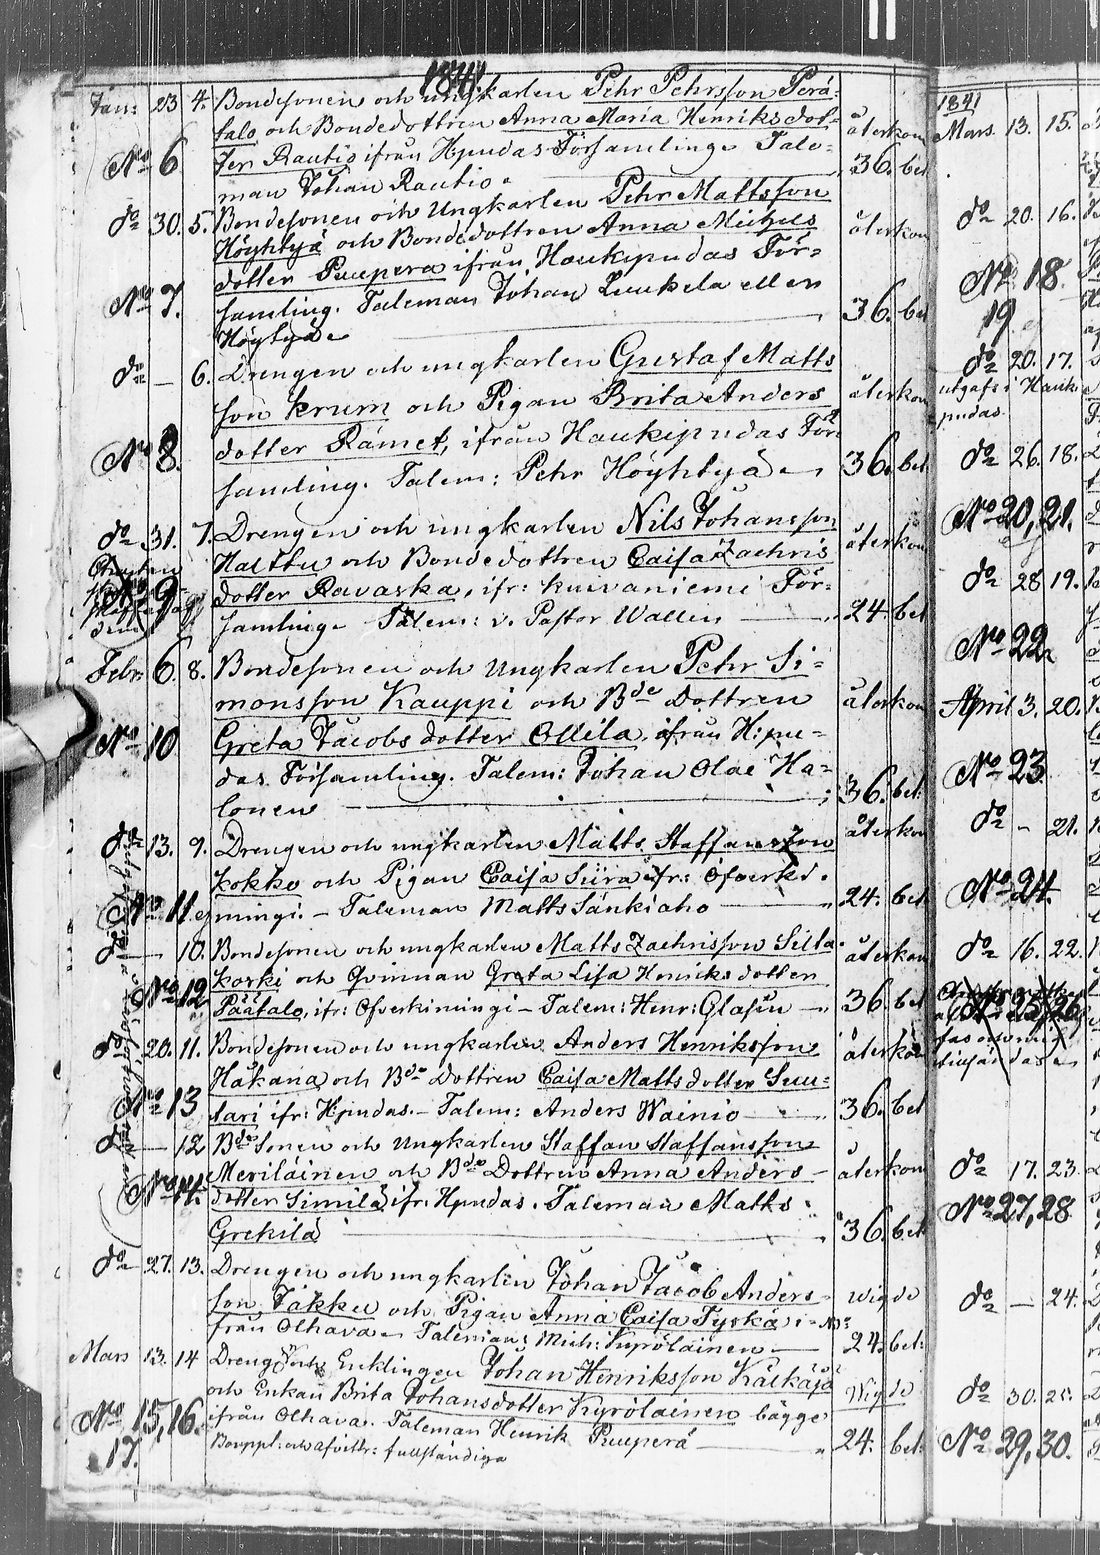 1841
Jan: 23 4. Bondesonen och ungkarlen Pehr Pehrsson Perä-
talo och Bondedottren Anna Maria Henriksdot- återkom
No 6 ter Rautio ifrån Hpudas Församling. Tale- 36. bet
man Johan Rautio.
do 30. 5. Bondesonen och Ungkarlen Pehr Mattsson
Höyhtyä och Bondedottren Anna Michels återkom
dotter Puupera ifrån Haukipudas För-
No 7. samling. Taleman Johan Luukela eller 36. bet
Höyhtyä
do — 6. Drengen och ungkarlen Gustaf Matts
son Krum och Pigan Brita Anders återkom
No 8. dotter Rämet, ifrån Haukipudas För
samling. Talem: Pehr Höyhtyä 36. bet
do 31. 7. Drengen och ungkarlen Nils Johansson
Hattu och Bondedottren Caisa Zachris återkom
No 9 dotter Ravaska, ifr: Kuivaniemi För-
samling. Talem: v. Pastor Wallin — 24. bet
Febr: 6. 8. Bondesonen och Ungkarlen Pehr Si-
monsson Kauppi och Bde Dottren återkom
No 10 Greta Jacobsdotter Ollila, ifrån Hpu-
das Församling. Talem: Johan Olae Ha-
lonen — 36. bet:
do 13. 9. Drengen och ungkarlen Matts Staffansson återkom
Kokko och Pigan Caisa Siira ifr: Öfverki-
No 11. mingi. — Taleman Matts Sänkiaho — 24. bet
do — 10. Bondesonen och ungkarlen Matts Zachrisson Silta- återkom
koski och Qvinnan Greta Lisa Henriksdotter
No 12 Päätalo, ifr: Öfverkimingi — Talem: Henr: Glasén — 36. bet
do 20. 11. Bondesonen och ungkarlen Anders Henriksson återkom
Håkana och Bde Dottren Caisa Mattsdotter Suu-
No 13 tari ifr: Hpudas. — Talem: Anders Wainio — 36. bet
do — 12 Bde Sonen och Ungkarlen Staffan Staffansson
Meriläinen och Bde Dottren Anna Anders- återkom
No 14. dotter Similä, ifr: Hpudas. Taleman Matts
Grekilä — 36. bet
do 27. 13. Drengen och ungkarlen Johan Jacob Anders-
son Jäkku och Pigan Anna Caisa Tyskä i- wigde
från Olhava. Taleman: Mich: Kyröläinen — 24. bet:
Mars 13. 14 Dreng och Enklingen Johan Henriksson Kälkäjä
och Enkan Brita Johansdotter Kyröläinen bägge Wigde
No 15, 16. ifrån Olhava. Taleman Henrik Puuperä — 24. bet:
17. Bouppt: och afvittr: fullständiga
1841
Mars. 13. 15.
do 20. 16.
No 18
19
do 20. 17.
utgafs i Hauki
pudas.
do 26. 18.
No 20, 21.
do 28 19.
No 22
April 3. 20.
No 23
do — 21.
No 24.
do 16. 22.
No 25, 26
do 17. 23.
No 27, 28
do — 24.
do 30. 25.
No 29, 30.